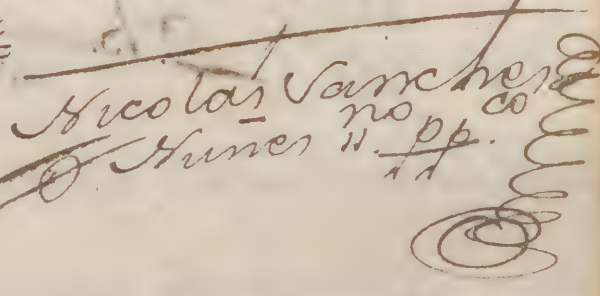 Nicolas Sanches
Nunes nº. ppco.